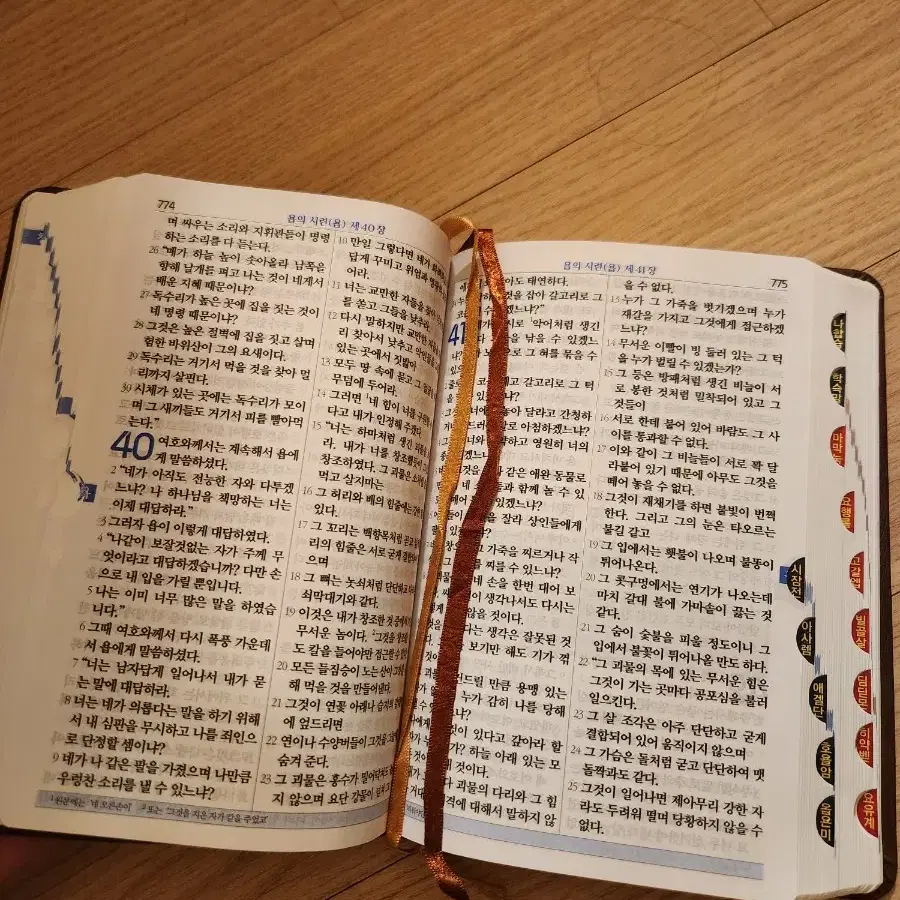 774
욥의 시련(욥) 제40장
며 싸우는 소리와 지휘관들이 명령
하는 소리를 다 듣는다.
26 “매가 하늘 높이 솟아올라 남쪽을
향해 날개를 펴고 나는 것이 네게서
배운 지혜 때문이냐?
27 독수리가 높은 곳에 집을 짓는 것이
네 명령 때문이냐?
28 그것은 높은 절벽에 집을 짓고 살며
험한 바위산이 그의 요새이다.
29 독수리는 거기서 먹을 것을 찾아 멀
리까지 살핀다.
30 시체가 있는 곳에는 독수리가 모이
며 그 새끼들도 거기서 피를 빨아먹
는다.”
40 여호와께서는 계속해서 욥에
게 말씀하셨다.
2 “네가 아직도 전능한 자와 다투겠
느냐? 나 하나님을 책망하는 너는
이제 대답하라.”
3 그러자 욥이 이렇게 대답하였다.
4 “나같이 보잘것없는 자가 주께 무
엇이라고 대답하겠습니까? 다만 손
으로 내 입을 가릴 뿐입니다.
5 나는 이미 너무 많은 말을 하였습
니다.”
6 그때 여호와께서 다시 폭풍 가운데
서 욥에게 말씀하셨다.
7 “너는 남자답게 일어나서 내가 묻
는 말에 대답하라.
8 너는 네가 의롭다는 말을 하기 위해
서 내 심판을 무시하고 나를 죄인으
로 단정할 셈이냐?
9 네가 나 같은 팔을 가졌으며 나만큼
우렁찬 소리를 낼 수 있느냐?
10 만일 그렇다면 네가
답게 꾸미고 위엄과
어라.
11 너는 교만한 자들을
를 쏟고 그들을 낮추라.
12 다시 말하지만 교만한 자를
리 찾아서 낮추고 악인들을
있는 곳에서 짓밟아
13 모두 땅 속에 묻고 그
무덤에 두어라.
14 그러면 네 힘이 너를
다고 내가 인정해 주겠다.
15 “너는 하마처럼 생긴
라. 내가 너를 창조했듯이
창조하였다. 그 괴물은 소처럼
먹고 살지마는
16 그 허리와 배의 힘줄에는
있다.
17 그 꼬리는 백향목처럼
리의 힘줄은 서로 굳게
으며
18 그 뼈는 놋쇠처럼 단단하고
쇠막대기와 같다.
19 이것은 내가 창조한 것 중에서
무서운 놈이다.
도 칼을 들어야만 접근할 수
20 모든 들짐승이 노는 산이
해 먹을 것을 만들어낸다.
21 그것이 연꽃 아래나 습지의
에 엎드리면
22 연이나 수양버들이 그것을
숨겨 준다.
23 그 괴물은 홍수가 밀어닥쳐도
지 않으며 요단 강물이
775
욥의 시련(욥) 제41장
아도 태연하다.
것을 잡아 갈고리로 그
겠느냐?”
41
시로 악어처럼 생긴
을 낚을 수 있겠느
로 그 혀를 묶을 수
코
갈고리로 그 턱
놓아 달라고 간청하
아첨하겠느냐?
하고 영원히 너의
같은 애완 동물로
과 함께 놀 수 있
겠느냐?
잘라 상인들에게
가죽을 찌르거나 작
를 찌를 수 있느냐?
네 손을 한번 대어 보
생각나서도 다시는
않을 것이다.
다는 생각은 잘못된 것
보기만 해도 기가 꺾
드릴 만큼 용맹 있는
누가 감히 나를 당해
것이 있다고 갚아라 할
하늘 아래 있는 모
것이다.
괴물의 다리와 그 힘
격에 대해서 말하지 않
을 수 없다.
13 누가 그 가죽을 벗기겠으며 누가
재갈을 가지고 그것에게 접근하겠
느냐?
14 무서운 이빨이 빙 둘러 있는 그 턱
을 누가 벌릴 수 있겠는가?
15 그 등은 방패처럼 생긴 비늘이 서
로 봉한 것처럼 밀착되어 있고 그
것들이
16 서로 한데 붙어 있어 바람도 그 사
이를 통과할 수 없다.
17 이와 같이 그 비늘들이 서로 꽉 달
라붙어 있기 때문에 아무도 그것을
떼어 놓을 수 없다.
18 그것이 재채기를 하면 불빛이 번쩍
한다. 그리고 그의 눈은 타오르는
불길 같고
19 그 입에서는 횃불이 나오며 불똥이
튀어나온다.
20 그 콧구멍에서는 연기가 나오는데
마치 갈대 불에 가마솥이 끓는 것
같다.
21 그 숨이 숯불을 피울 정도이니 그
입에서 불꽃이 튀어나올 만도 하다.
22 “그 괴물의 목에 있는 무서운 힘은
그것이 가는 곳마다 공포심을 불러
일으킨다.
23 그 살 조각은 아주 단단하고 굳게
결합되어 있어 움직이지 않으며
24 그 가슴은 돌처럼 굳고 단단하여 맷
돌짝과도 같다.
25 그것이 일어나면 제아무리 강한 자
라도 두려워 떨며 당황하지 않을 수
없다.
나합습
학속말
마막눅
요행롬
시장전
고갈엡
아사렘
빌골살
애겔단
딤딛몬
호욜암
히약벧
욜욘미
요유계